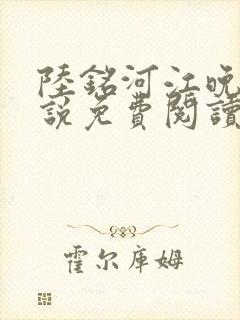 陸銘河江晚
說免費閱讀
霍尔库姆